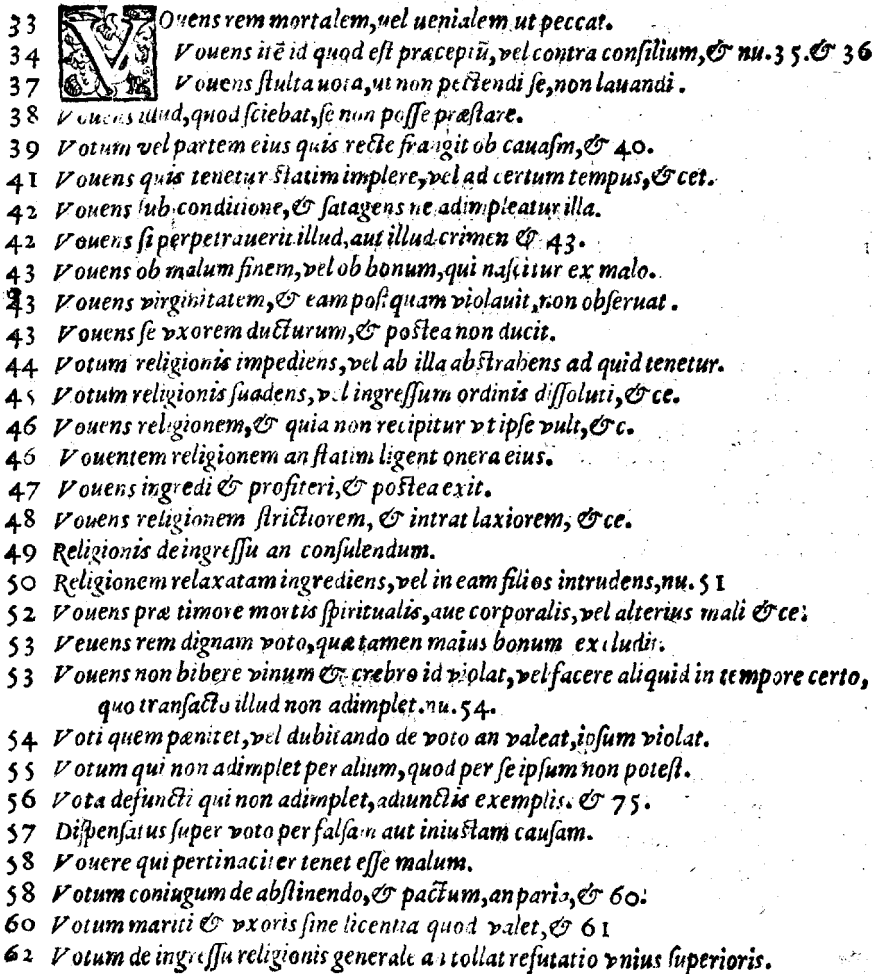 33 VOuens rem mortalem, uel uenialem ut peccat.
34 Vouens itē id quod est præceptū, vel contra consilium, & nu. 35. & 36
37 Vouens stulta uota, ut non pectendi se, non lauandi.
38 Vouens illud, quod sciebat, se non posse præstare.
39 Votum vel partem eius quis recte frangit ob cauasm, & 40.
41 Vouens quis tenetur statim implere, vel ad certum tempus, & cet.
42 Vouens sub conditione, & satagens ne adimpleatur illa.
42 Vouens si perpetrauerit illud, aut illud crimen & 43.
43 Vouens ob malum finem, vel ob bonum, qui nascitur ex malo.
43 Vouens virginitatem, & eam postquam violauit, non obseruat.
43 Vouens se vxorem ducturum, & postea non ducit.
44 Votum religionis impediens, vel ab illa abstrahens ad quid tenetur.
45 Votum religionis suadens, vel ingressum ordinis dissoluti, & ce.
46 Vouens religionem, & quia non recipitur vt ipse vult, & c.
46 Vouentem religionem an statim ligent onera eius.
47 Vouens ingredi & profiteri, & postea exit.
48 Vouens religionem strictiorem, & intrat laxiorem, & ce.
49 Religionis de ingressu an consulendum.
50 Religionem relaxatam ingrediens, vel in eam filios intrudens, nu. 51
52 Vouens præ timore mortis spiritualis, aue corporalis, vel alterius mali & ce.
53 Veuens rem dignam voto, quæ tamen maius bonum excludit.
53 Vouens non bibere vinum & crebro id violat, vel facere aliquid in tempore certo,
quo transacto illud non adimplet. nu. 54.
54 Voti quem pænitet, vel dubitando de voto an valeat, ipsum violat.
55 Votum qui non adimplet per alium, quod per se ipsum non potest.
56 Vota defuncti qui non adimplet, adiunctis exemplis. & 75.
57 Dispensatus super voto per falsam aut iniustam causam.
58 Vouere qui pertinaciter tenet esse malum.
58 Votum coniugum de abstinendo, & pactum, an paria, & 60.
60 Votum mariti & vxoris sine licentia quod valet, & 61
62 Votum de ingressu religionis generale an tollat refutatio vnius superioris.